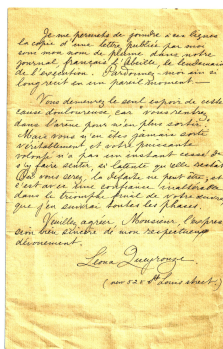 Je me permets de joindre à ces lignes
la copie d'une lettre publiée par moi
sous mon nom de plume dans notre
journal français l'Abeille, le lendemain
de l'exécution. Pardonnez-moi un si
long récit en un pareil moment.—
Vous demeurez le seul espoir de cette
cause douloureuse, car vous rentrez
dans l'arène pour n'en plus sortir.
Mais vous n'en êtes jamais sorti
véritablement, et votre puissante
volonté n'a pas un instant cessé de
s'y faire sentir si latente qu'elle restât.
Où vous serez, la défaite ne peut être, et
c'est avec une confiance inaltérable
dans le triomphe final de votre œuvre
que j'en suivrai toutes les phases.
Veuillez agréer, Monsieur, l'expres
sion bien sincère de mon respectueux
dévouement.
Léona Queyrouze
(    528 St. Louis street.)